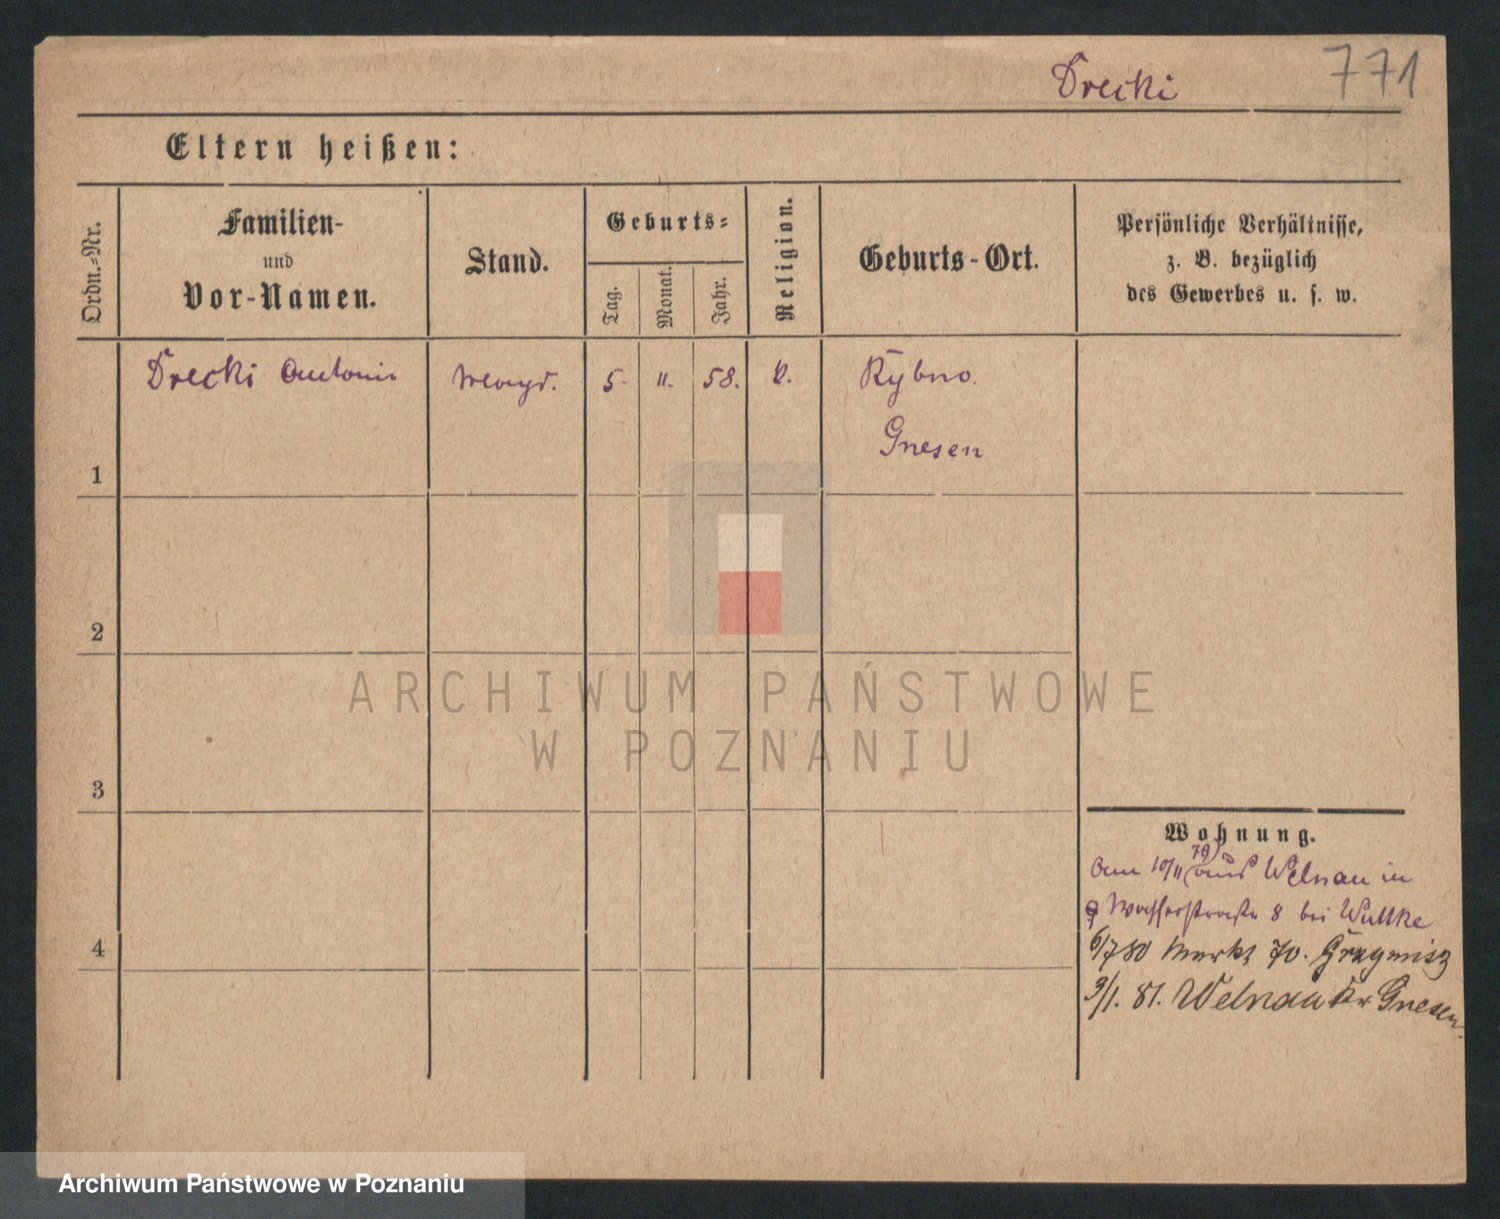 Drecki 771
Eltern heißen:
Ordn.-Nr.
Familien-
und
Vor-Namen.
Stand.
Geburts-
Tag.
Monat.
Jahr.
Religion.
Geburts-Ort.
Persönliche Verhältnisse,
z. B. bezüglich
des Gewerbes u. s. w.
1 Drecki 5. 11. 58. Rybno.
Gnesen
2
3
4
Wohnung.
79
Am 10/11 aus Welnau in
Wasserstraße 8 bei Wuttke
6/7 80 Markt 70.
9/1. 81. Welnau Kr Gnesen.
ARCHIWUM PAŃSTWOWE
W POZNANIU
Archiwum Państwowe w Poznaniu